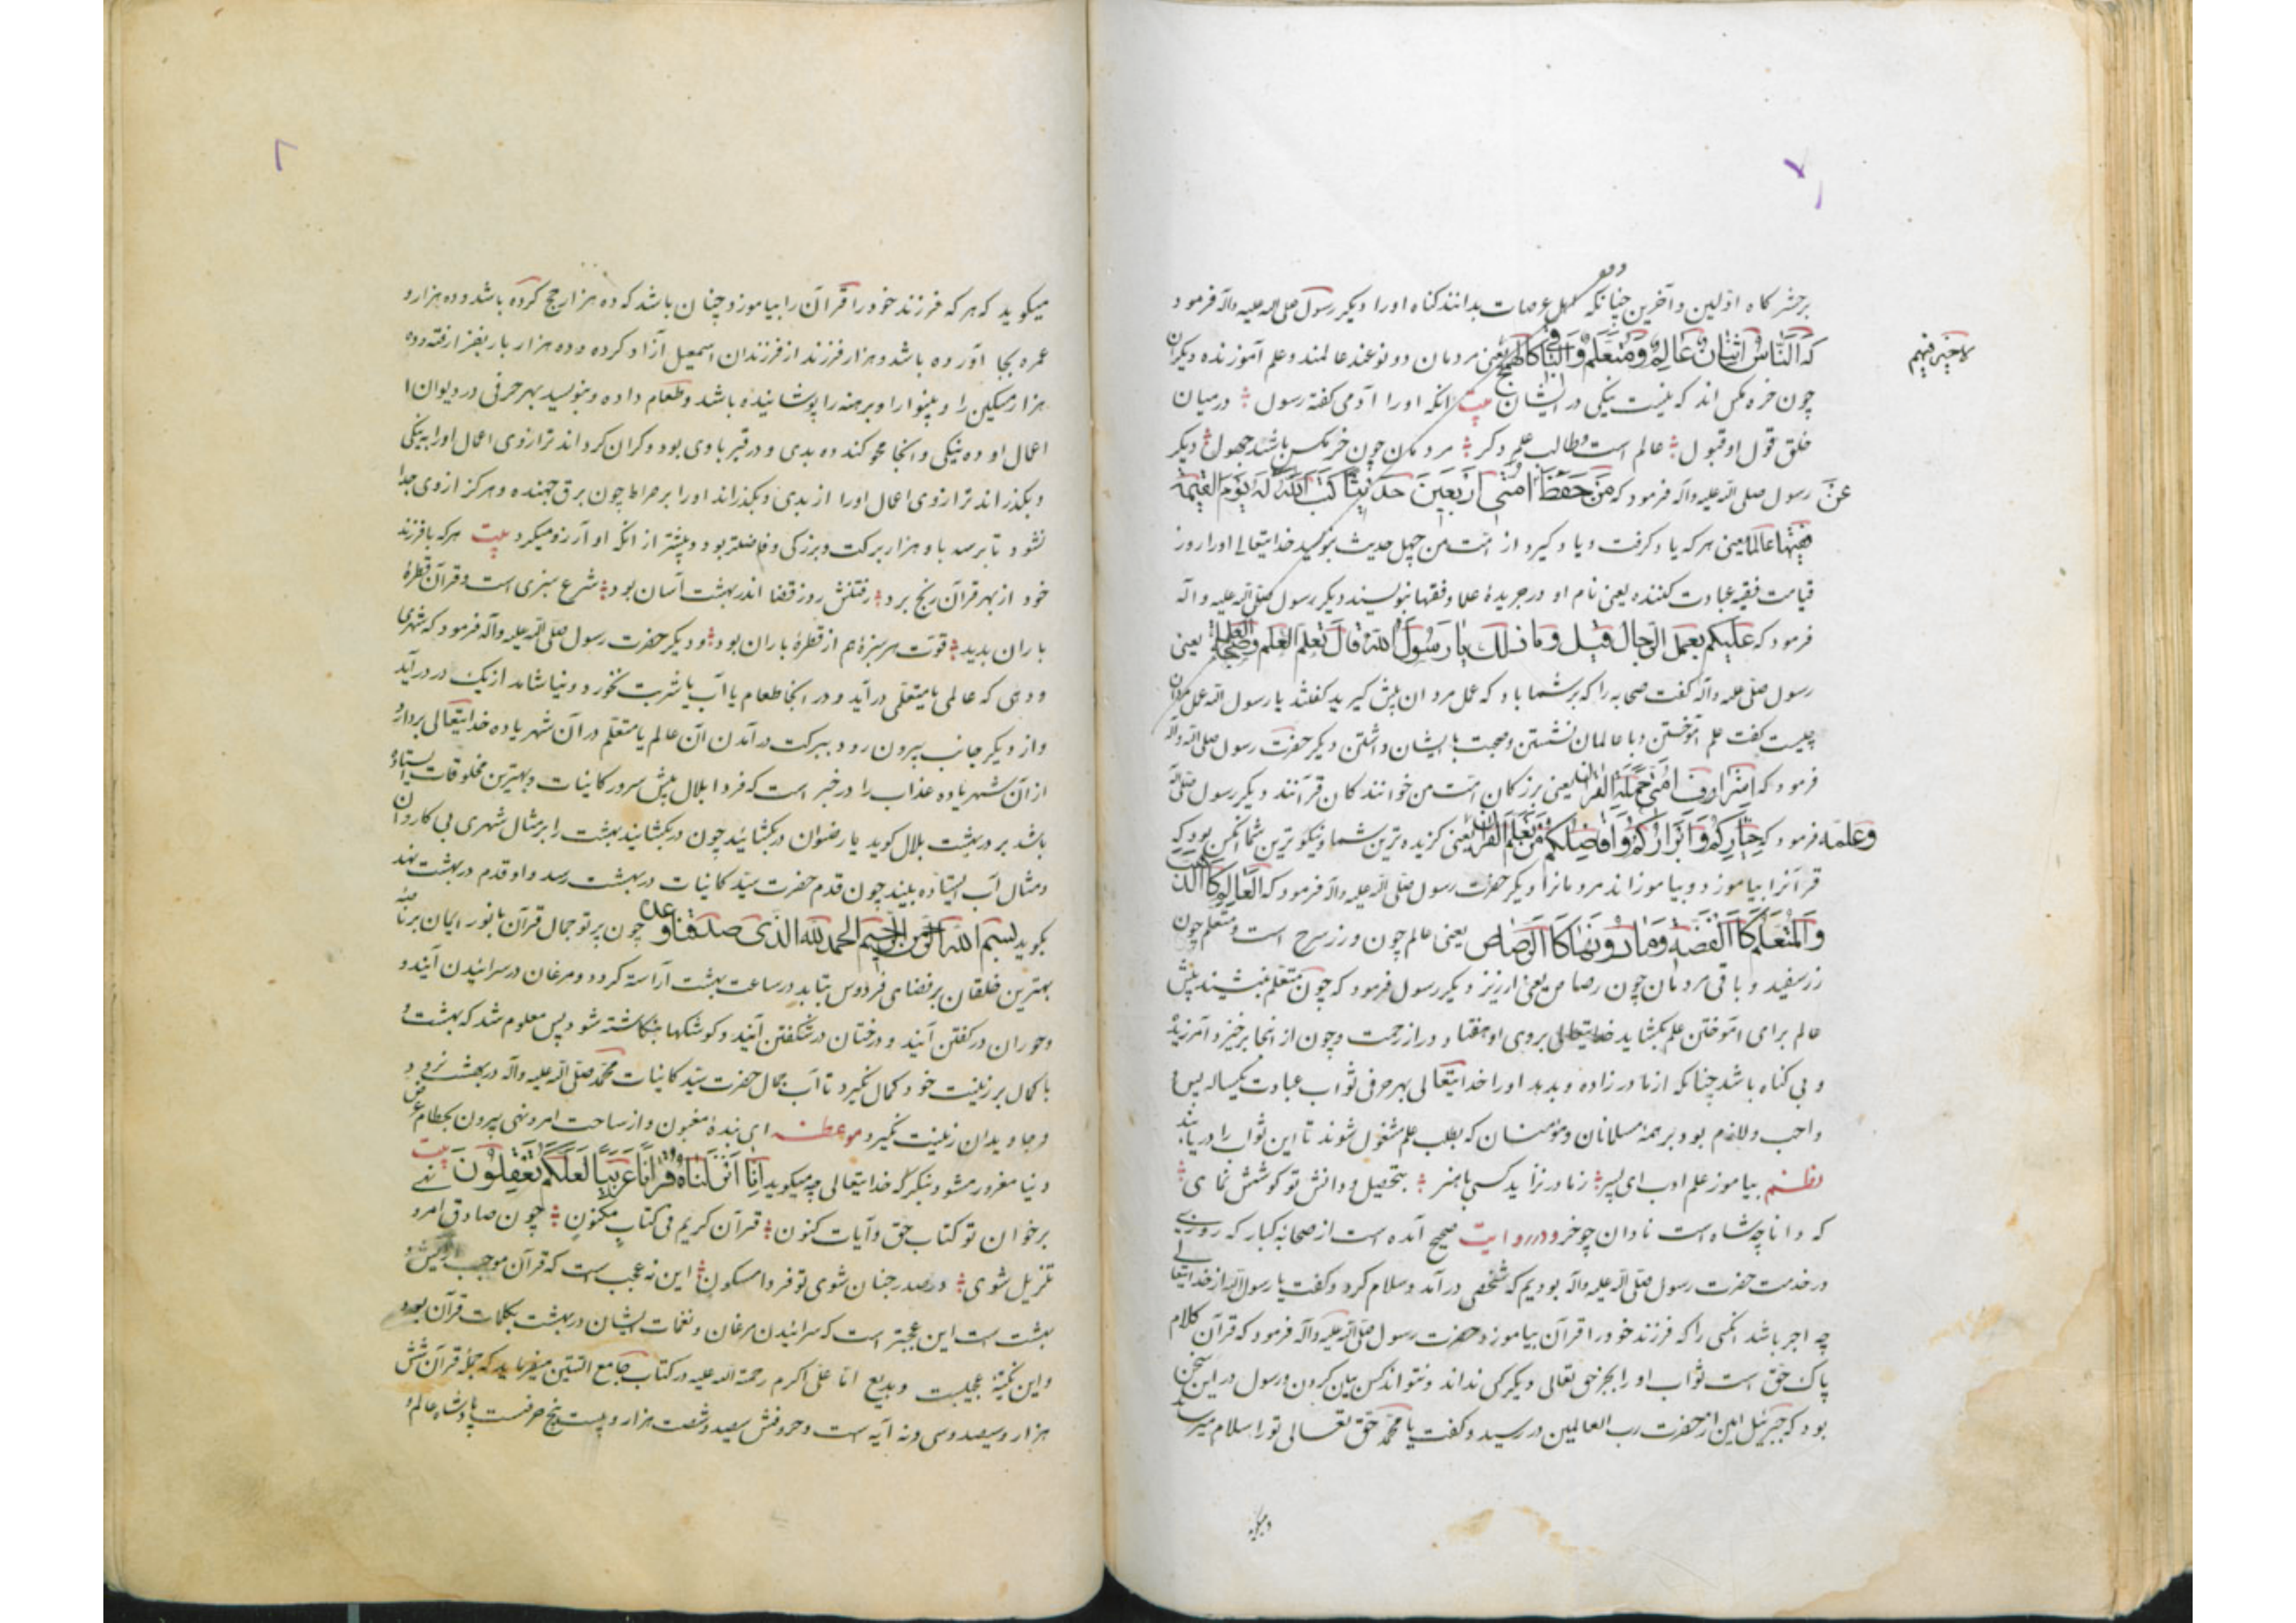 بر حشرگاه اولین و آخرین چنانکه اهل عرصات بدانند کناه اورا و دیکر رسول صلی الله علیه و آله فرمود
که النَّاسُ اثنانِ عَالِمٌ وَمُتَعَلِّمٌ وَالباقی کالهمج یعنی مردمان دو نوعند عالمند و علم آموزنده دیکران
لا خیر فیهم
چون خره مکس اند که نیست نیکی در ایشان بیت انکه اورا آدمی کفته رسول در میان
خلق قول او قبول عالم است و طالب علم و کر مردمکن چون خرمکس باشد جهول دیکر
عن رسول صلی الله علیه و آله فرمود که مَن حَفِظَ اُمَّتی اَربَعینَ حَدیثًا کَتَبَ اللهُ لَهُ یَومَ القیمة
فقیها عالما یعنی هر که یاد کرفت و یاد کیرد از امت من چهل حدیث بنویسد خدایتعالی اورا روز
قیامت فقیه عبادت کننده یعنی نام او در جریدهٔ علما و فقها بنویسند دیکر رسول صلی الله علیه و آله
فرمود که علیکم بعمل الرجال قیل وما ذلک یا رسول الله قال تعلم العلم وصحبة العلماء یعنی
رسول صلی علیه و آله کفت صحابه را که بر شما باد که عمل مردان پیش کیرید کفتند یا رسول الله عمل مردان
چیست کفت علم آموختن و با عالمان نشستن و صحبت با ایشان داشتن دیکر حضرت رسول صلی الله و آله
فرمود که اشراف امتی حملة القرآن یعنی بزرکان امت من خوانندکان قرآنند دیکر رسول صلی الله
وعلمه فرمود که خیارکم وابرارکم وافاضلکم من تعلم القرآن یعنی کزیده ترین شما و نیکو ترین شما انکس بود که
قرآنرا بیاموزد و بیاموزاند مردمانرا دیکر حضرت رسول صلی الله علیه و آله فرمود که العالم کالذهب
والمتعلم کاالفضة وما دونها کاالرصاص یعنی عالم چون زر سرخ است و متعلم چون
زر سفید و باقی مردمان چون رصاص یعنی ارزیز دیکر رسول فرمود که چون متعلم بنشیند پیش
عالم برای آموختن علم بکشاید خدایتعالی بروی او هفتاد در از رحمت و چون از انجا برخیزد آمرزیده
و بی کناه باشد چنانکه از مادر زاده و بدهد اورا خدایتعالی بهر حرفی ثواب عبادت یکساله پس
واجب و لازم بود بر همهٔ مسلمانان و مؤمنان که بطلب علم مشغول شوند تا این ثواب را دریابند
نظم بیاموز علم ادب ای پسر ز مادر نزاید کسی با هنر بتحصیل و دانش تو کوشش نمای
که دانا چه شاه است نادان چو خر و در روایت صحیح آمده است از صحابهٔ کبار که روزی
در خدمت حضرت رسول صلی الله علیه و آله بودیم که شخصی درآمد و سلام کرد و کفت یا رسول الله از خدایتعالی
چه اجر باشد انکسی را که فرزند خود را قرآن بیاموزد حضرت رسول صلی الله علیه و آله فرمود که قرآن کلام
پاک حق است ثواب او را بجز حق تعالی دیکر کسی نداند و نتواند کس بیان کردن و رسول در این سخن
بود که جبرئیل امین از حضرت رب العالمین در رسید و کفت یا محمد حق تعالی تو را سلام میرساند
و میکوید
میکوید که هر که فرزند خود را قرآن را بیاموزد چنان باشد که ده هزار حج کرده باشد و ده هزار
عمره بجا آورده باشد و هزار فرزند از فرزندان اسمعیل آزاد کرده و ده هزار بار بغزا رفته و ده
هزار مسکین را و بینوا را و برهنه را پوشانیده باشد و طعام داده و بنویسد بهر حرفی در دیوان
اعمال او ده نیکی و انجا محو کند ده بدی و در قبر با وی بود و کران کرداند ترازوی اعمال اورا به نیکی
و بکذراند ترازوی اعمال اورا از بدی و بکذراند اورا بر صراط چون برق جهنده و هرکز از وی جدا
نشود تا برسد با و هزار برکت و بزرکی و فاضلتر بود و بیشتر از انکه او آرزو میکرد بیت هر که با فرزند
خود از بهر قرآن رنج برد رفتنش روز قضا اندر بهشت آسان بود شرع سبزی است و قرآن قطرهٔ
باران بدید قوت هر سبزهٔ هم از قطرهٔ باران بود و دیکر حضرت رسول صلی الله علیه و آله فرمود که شهری
و دهی که عالمی یا متعلمی درآید و در انجا طعام یا آب یا شربت نخورد و نیاشامد از یک در درآید
و از دیکر جانب بیرون رود ببرکت درآمدن آن عالم یا متعلم در آن شهر یا ده خدایتعالی بردارد
از آن شهر یا ده عذاب را در خبر است که فردا بلال پیش سرور کاینات و بهترین مخلوقات ایستاده
باشد بر در بهشت بلال کوید یا رضوان در بکشائید چون در بکشایند بهشت را بر مثال شهری بی کاروان
و مثال آب ایستاده بیند چون قدم حضرت سید کاینات در بهشت رسد و او قدم در بهشت نهد
بکوید بسم الله الرحمن الرحیم الحمد لله الذی صدقنا وعده چون پرتو جمال قرآن با نور ایمان بر ناصیهٔ
بهترین خلقان بر فضای فردوس بتابد در ساعت بهشت آراسته کردد و مرغان در سرائیدن آیند و
و حوران در کفتن آیند و درختان در شکفتن آیند و کوشکها بنکاشته شود پس معلوم شد که بهشت
با کمال بر زینت خود کمال نکیرد تا آب جمال حضرت سید کاینات محمد صلی الله علیه و آله در بهشت نرود
و جاویدان زینت نکیرد موعظه ای بندهٔ مغبون و از ساحت امر و نهی بیرون بحطام
دنیا مغرور مشو و بنکر که خدایتعالی چه میکوید انا انزلناه قرآنا عربیا لعلکم تعقلون بیت
برخوان تو کتاب حق و آیات کنون قرآن کریم فی کتاب مکنون چون صادق امر
تنزیل شوی در صدر جنان شوی تو فردا مسکون این نه عجب است که قرآن موجب آرایش
بهشت است این عجبتر است که سرائیدن مرغان و نغمات ایشان در بهشت بکلمات قرآن بود
و این نکتهٔ عجیبت و بدیع اما علی اکرم رحمة الله علیه در کتاب جامع میفرماید که جملهٔ قرآن شش
هزار و سیصد و سی و نه آیه است و حروفش سیصد و شصت هزار و بیست و پنج حرفست پادشاه عالم